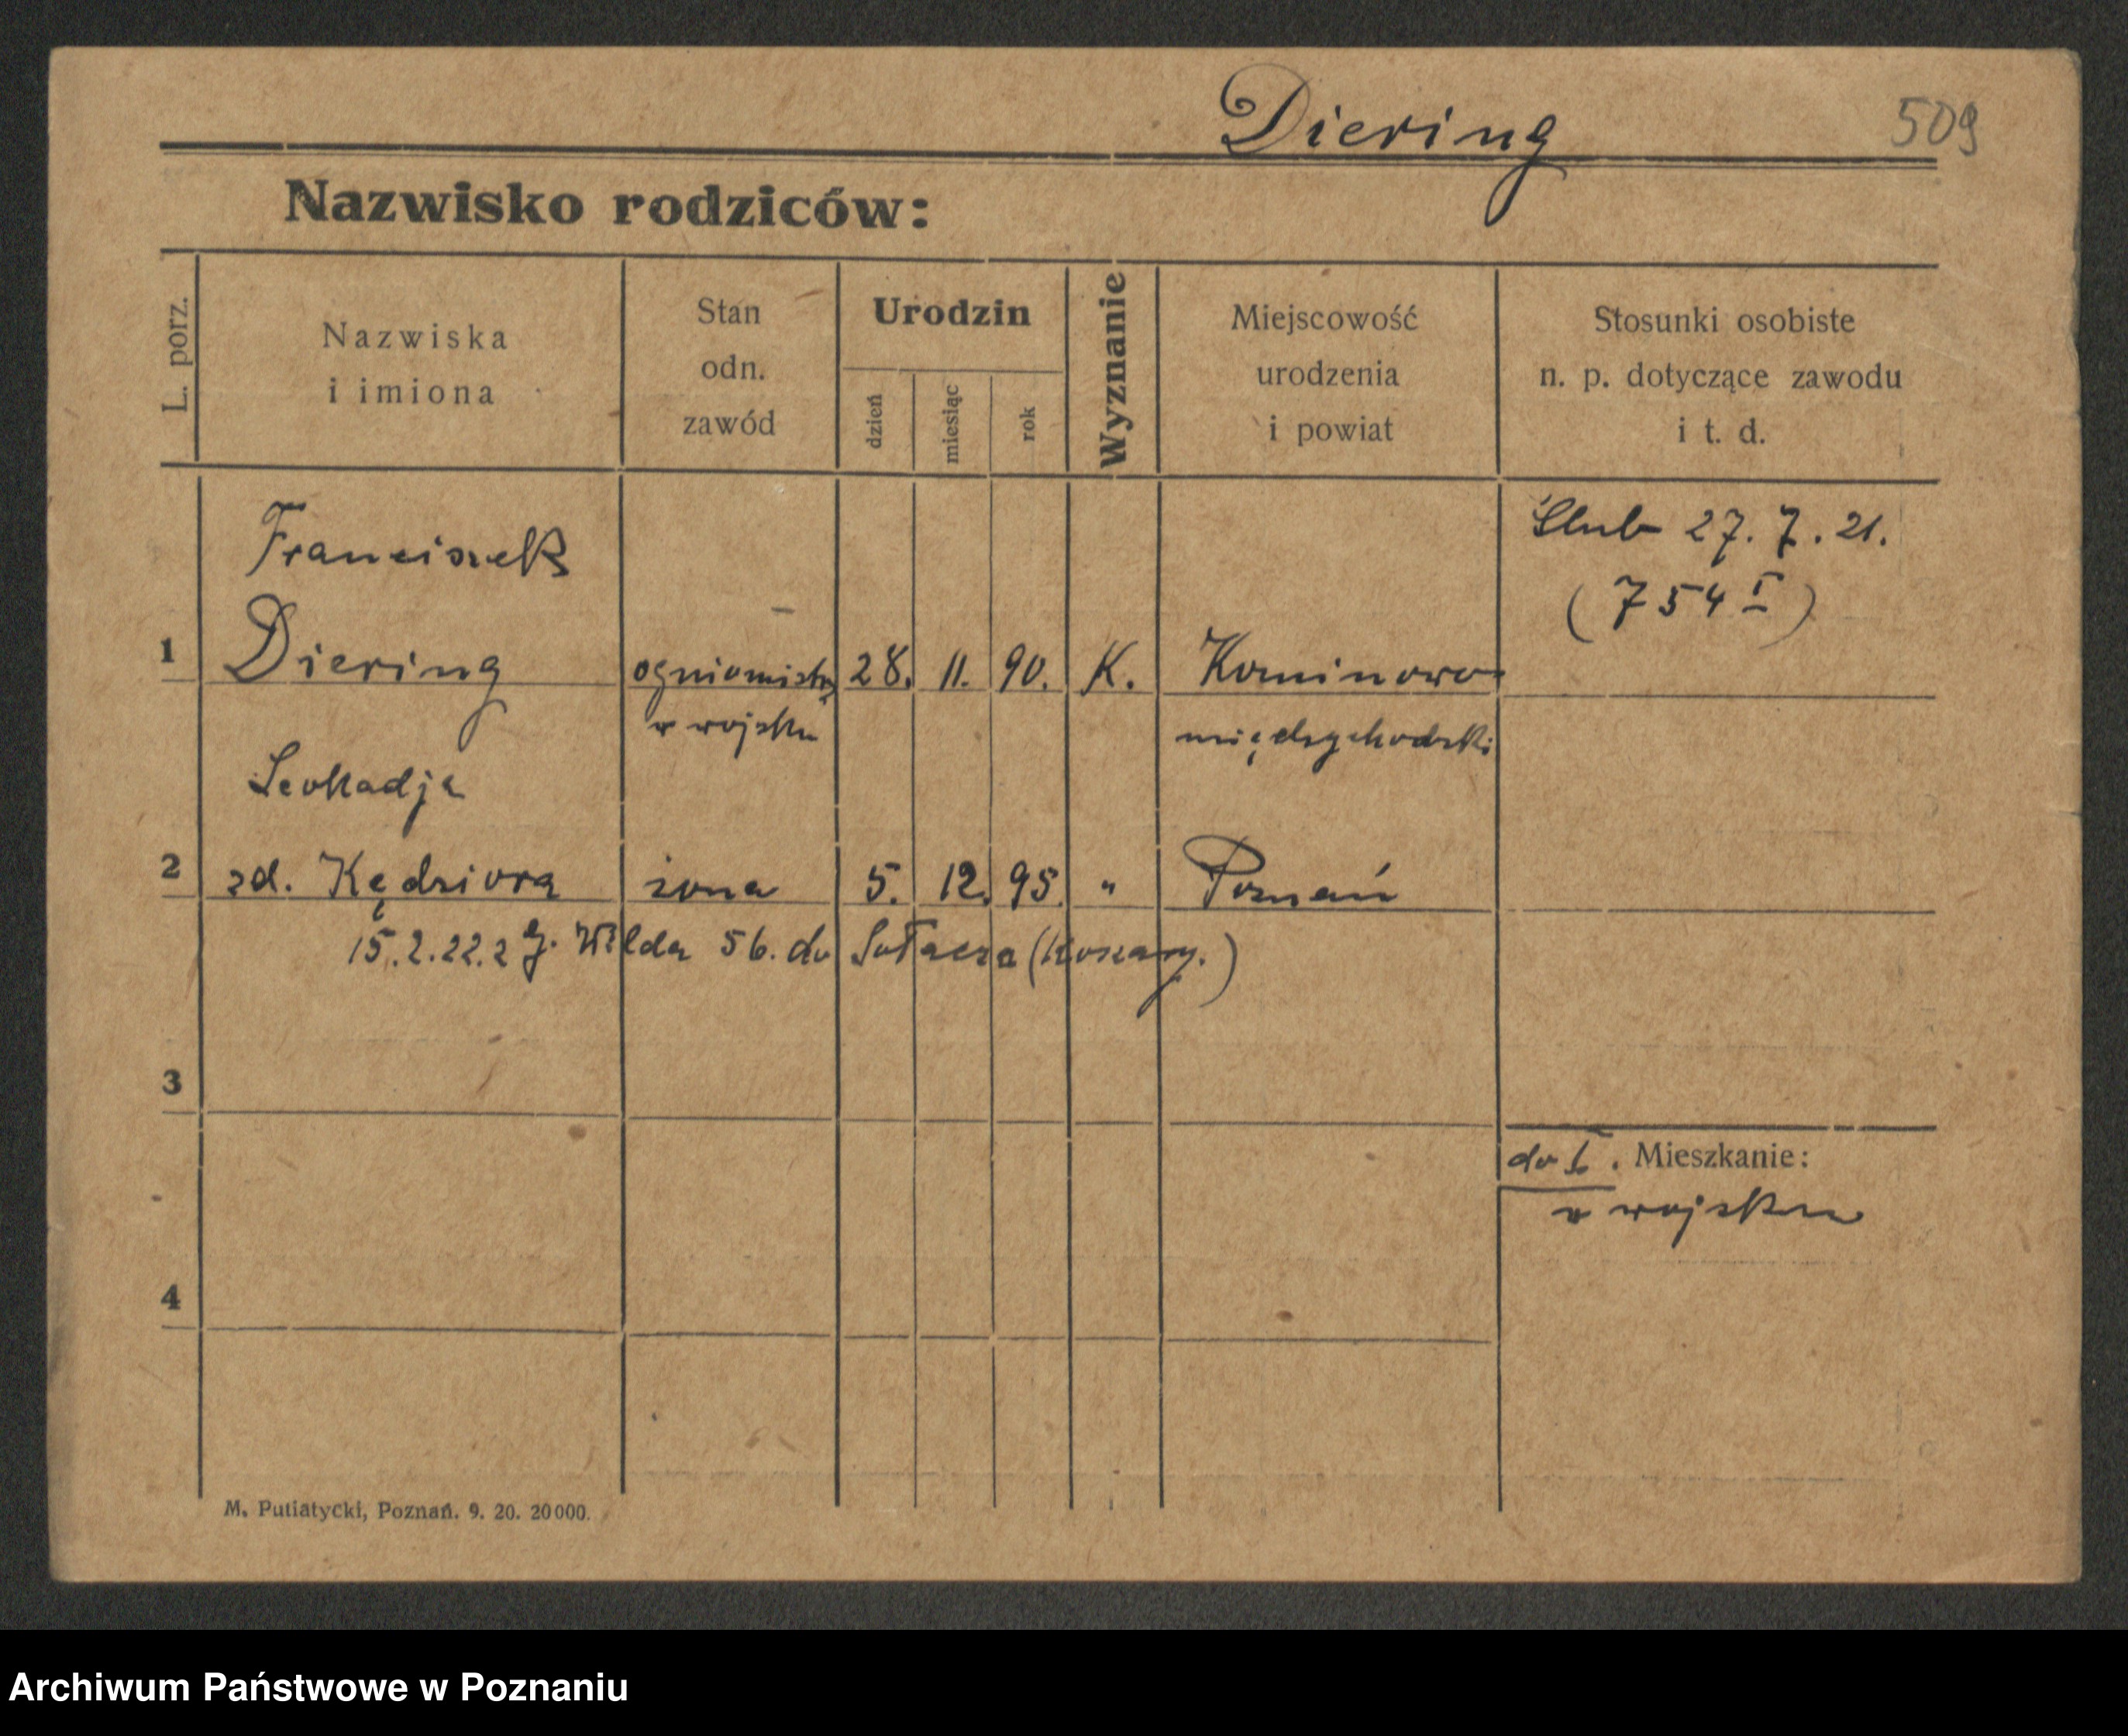 Diering 509
Nazwisko rodziców:
L. porz.
Nazwiska
i imiona
Stan
odn.
zawód
Urodzin
dzień
miesiąc
rok
Wyznanie
Miejscowość
urodzenia
i powiat
Stosunki osobiste
n. p. dotyczące zawodu
i t. d.
Ślub 27. 7. 21.
(754 I)
Franciszek
1 Diering ogniomistrz 28. 11. 90. K. Kominowo
w wojsku międzychodzki
Leokadja
2 zd. Kędziora żona 5. 12. 95. " Poznań
15.2.22. z G. Wilda 56. do Sołacza (Koszary.)
3
do . Mieszkanie:
w wojsku
4
M. Putiatycki, Poznań. 9. 20. 20000.
Archiwum Państwowe w Poznaniu